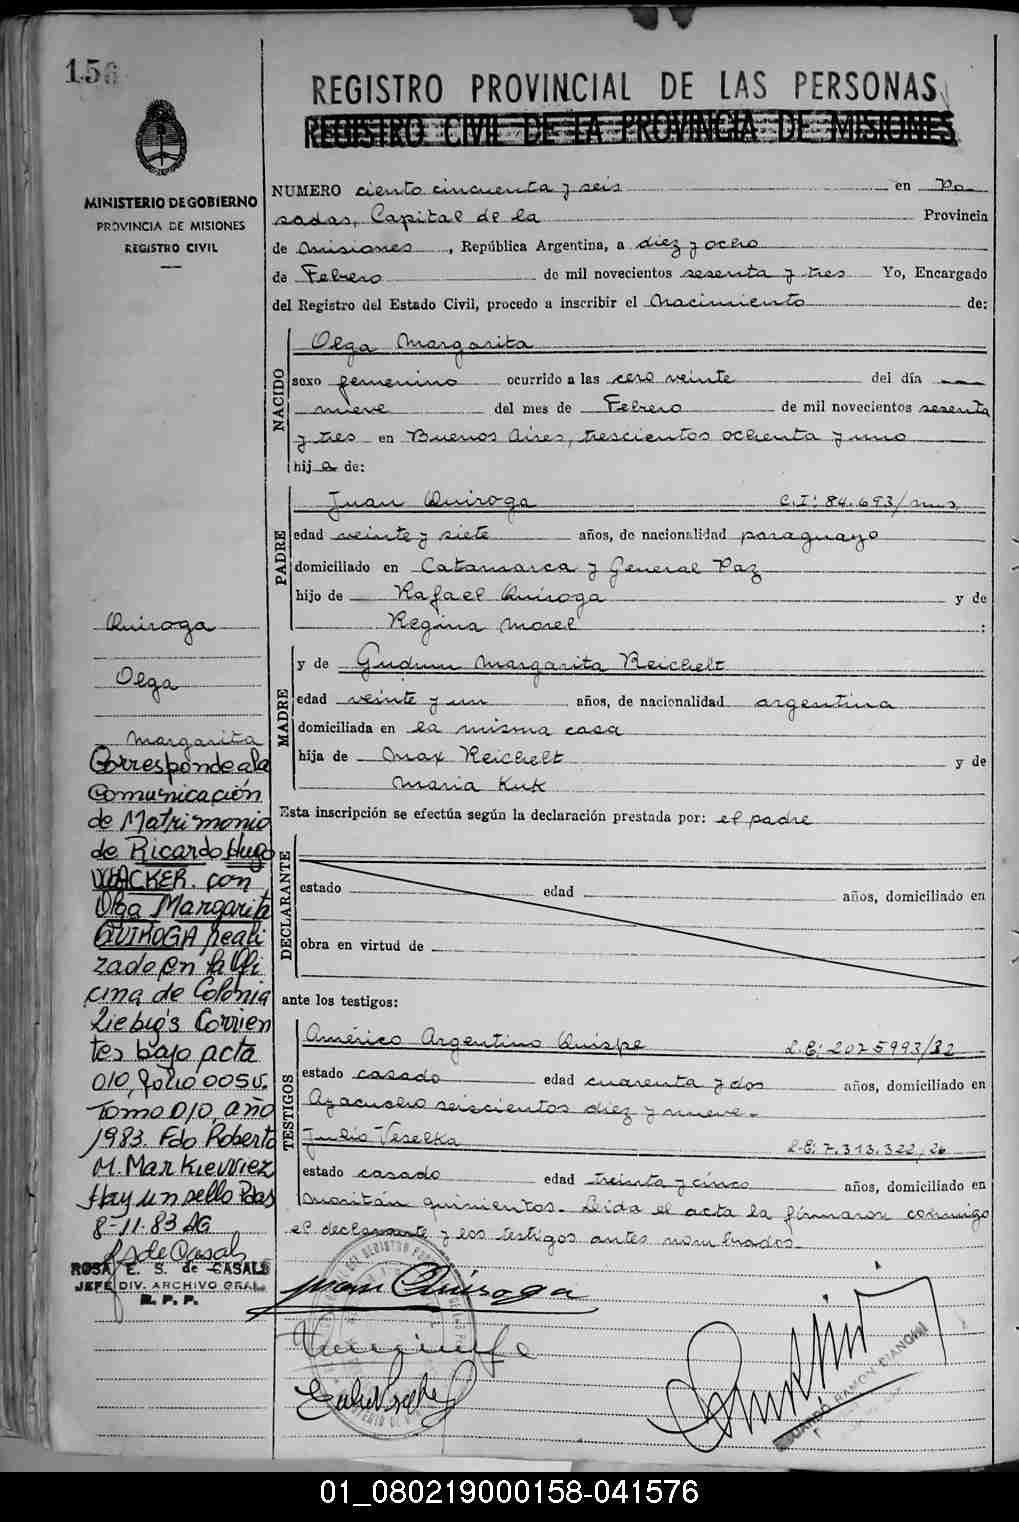 156
REGISTRO PROVINCIAL DE LAS PERSONAS
REGISTRO CIVIL DE LA PROVINCIA DE MISIONES
MINISTERIO DE GOBIERNO
PROVINCIA DE MISIONES
REGISTRO CIVIL
NUMERO ciento cincuenta y seis en Po
sadas, Capital de la Provincia
de Misiones, República Argentina, a diez y ocho
de Febrero de mil novecientos sesenta y tres Yo, Encargado
del Registro del Estado Civil, procedo a inscribir el Nacimiento de:
NACIDO
Olga Margarita
sexo femenino ocurrido a las cero veinte del día
nueve del mes de Febrero de mil novecientos sesenta
y tres en Buenos Aires, trescientos ochenta y uno
hija de:
PADRE
Juan Quiroga C.I: 84.693/mns
edad veinte y siete años, de nacionalidad paraguayo
domiciliado en Catamarca y General Paz
hijo de Rafael Quiroga y de
Regina Morel ;
MADRE
y de Gudrun Margarita Reichelt
edad veinte y un años, de nacionalidad argentina
domiciliada en la misma casa
hija de Max Reichelt y de
Maria Kuk
Esta inscripción se efectúa según la declaración prestada por: el padre
DECLARANTE
estado edad años, domiciliado en
obra en virtud de
ante los testigos:
TESTIGOS
Américo Argentino Quispe L.E: 2025993/32
estado casado edad cuarenta y dos años, domiciliado en
Ayacucho seiscientos diez y nueve.-
Julio Veselka L.E: 7.313.322/26
estado casado edad treinta y cinco años, domiciliado en
Moritán quinientos.- Leida el acta la firmaron conmigo
el declarante y los testigos antes nombrados.-
Juan Quiroga
EDUARDO RAMON CIANCHI
Quiroga
Olga
Margarita
Corresponde a la
Comunicación
de Matrimonio
de Ricardo Hugo
WACKER con
Olga Margarita
QUIROGA reali
zado en la Ofi
cina de Colonia
Liebig's Corrien
tes bajo acta
010, folio 005v.
Tomo 010, año
1983. Fdo Roberto
M. Markievriez
Hay un sello Pdas
8-11-83 AG
ROSA E. S. de CASALS
JEFE DIV. ARCHIVO GRAL.
R. P. P.
01_080219000158-041576